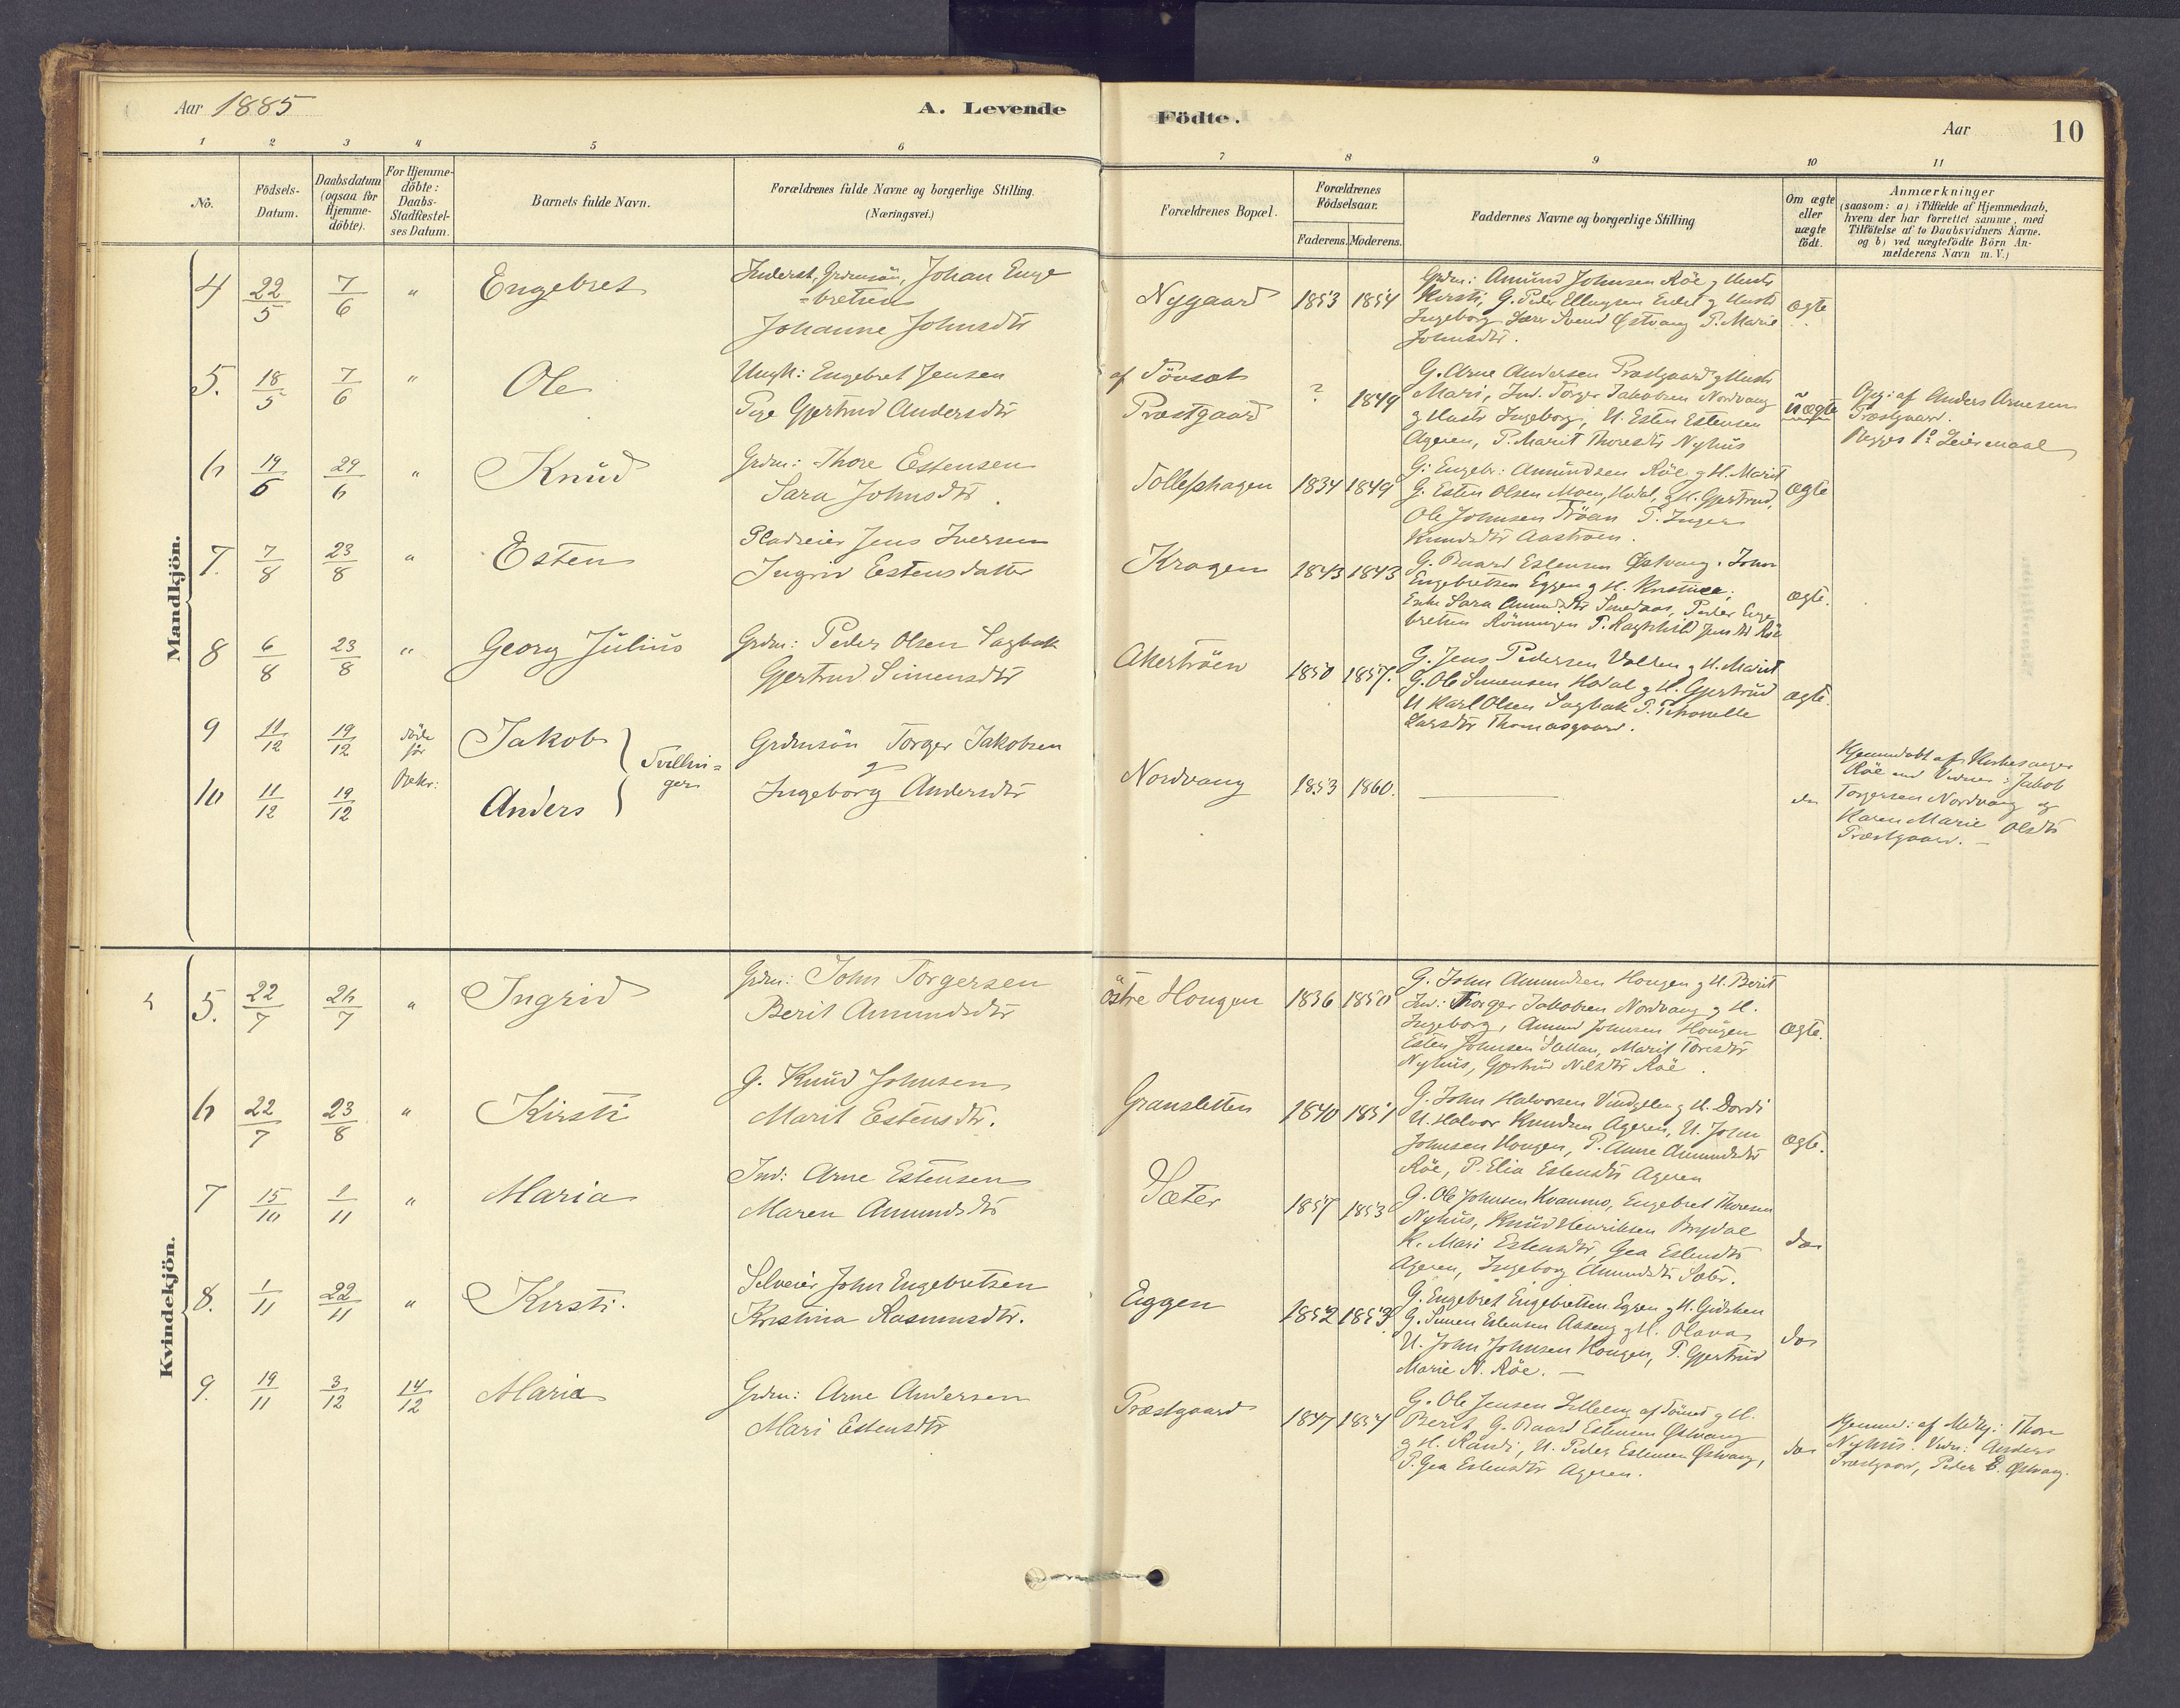 Aar 1885
A. Levende
Födte.
Aar
10
1 2 3 4 5 6 7 8 9 10 11
No.
Födsels-
Datum.
Daabsdatum
(ogsaa for
Hjemme-
döbte).
For Hjemme-
döbte:
Daabs-
Stadfæstel-
ses Datum.
Barnets fulde Navn.
Forældrenes fulde Navne og borgerlige Stilling.
(Næringsvei.)
Forældrenes Bopæl.
Forældrenes
Födselsaar.
Faderens. Moderens.
Faddernes Navne og borgerlige Stilling
Om ægte
eller
uægte
födt.
Anmærkninger
(saasom: a) i Tilfælde af Hjemmedaab,
hvem der har forrettet samme, med
Tilföielse af to Daabsvidners Navne.
og b) ved uægtefödte Börn An-
melderens Navn m.V.)
Mandkjön.
4 22/5 7/6 " Engebret
Inderst, Grdmsön, Johan Enge
=bretsen
Johanne Johnsdtr
Nygaard 1853 1854
Grdm: Amund Johnsen Röe g Hustr
Kirsti, G. Peder Ellingsen g Hustr
Ingeborg Svend Østvang P. Marie
Johnsdtr.
ægte
5. 18/5 7/6 " Ole
Ungk: Engebret Jensen
Pige Gjertrud Andersdtr
af Tönset
Præstgaard ? 1849
G. Arne Andersen Præstgaard g Hustr
Mari, Ind. Torger Jakobsen Nordvang
g Hustr Ingeborg, U. Esten Estensen
Ageren, P. Marit Thoresdtr Nyhus
uægte
Opg: af Anders Arnesen
Præstgaard.
Begges 1ste Leiermaal
6 19/6 29/6 " Knud
Grdm: Thore Estensen
Sara Johnsdtr.
Tollefshagen 1834 1849
G: Engebr: Amundsen Röe g H. Marit
G. Esten Olsen Moen, Hodal, g H. Gjertrud,
Ole Johnsen Tröan P. Inger
Knudsdtr Aaströen.
ægte
7. 7/8 23/8 " Esten
Pladseier Jens Iversen
Ingrid Estensdatter
Kragen 1843 1843
G. Baard Estensen Østvang, John
Engebretsen Eggen g H. Kristine,
Enke Sara Amundsdtr Smedaas, Peder Enge
bretsen Rönningen P. Ragnhild Jensdtr Röe
ægte.
8 6/8 23/8 " Georg Julius
Grdm: Peder Olsen Sagbak
Gjertrud Simensdtr
Akertröen 1850 1857.
G. Jens Pedersen Volden g H. Marit
G. Ole Simensen Hodal g H. Gjertrud
U Karl Olsen Sagbak P. Petronelle
Larsdtr Thomasgaard.
ægte.
9 11/12 19/12 döde
för
Bekr:
Jakob
Tvillin=
ger
10 11/12 19/12 Anders
Grdmsön Torger Jakobsen
g
Ingeborg Andersdtr
Nordvang 1853 1860.
do
Hjemmedöbt af Kirkesanger
Röe med Vidner: Jakob
Torgersen Nordvang og
Karen Marie Olsdtr
Præstgaard. —
Kvindekjön.
5. 22/7 26/7 " Ingrid
Grdm: John Torgersen
Berit Amundsdtr
östre Hougen 1836 1850
G. John Amundsen Hougen g H. Berit
Ind: Thorger Jakobsen Nordvang g H.
Ingeborg, Amund Johnsen Hougen
Esten Johnsen Marit Toresdtr
Nyhus, Gjertrud Nilsdtr Röe.
ægte.
6 22/7 23/8 " Kirsti
G. Knud Johnsen
Marit Estensdtr.
Gransletten 1840 1851
G. John Halvorsen Vingelen g H. Dordi
U. Halvor Knudsen Ageren, U. John
Johnsen Hougen, P. Anne Amundsdtr
Röe, P. Elia Estensdtr Ageren
ægte.
7 15/10 1/11 " Maria
Ind: Arne Estensen
Maren Amundsdtr
Sæter 1857 1853
G. Ole Johnsen Kvanmo, Engebret Thoresen
Nyhus, Knud Henriksen Brydal
K. Mari Estensdtr, Gea Estensdtr
Ageren, Ingeborg Amundsdtr Sæter.
do
8. 1/11 22/11 " Kirsti.
Selveier John Engebretsen
Kristina Rasmusdtr.
Eggen 1852 1853
G. Engebret Engebretsen Eggen g H. Gidsken
G. Simen Estensen Aaseng g H. Olava
U. John Johnsen Hougen, P. Gjertrud
Marie N. Röe. —
do
9. 19/11 3/12 14/12 Maria
Grdm: Arne Andersen
Mari Estensdtr
Præstgaard 1847 1854
G. Ole Jensen Lilleeng af Tönset g H.
Berit, G. Baard Estensen Østvang
g H. Randi, U. Peder Estensen Østvang,
P. Gea Estensdtr Ageren.
do
Hjemmed: af Thore
Nyhus. Vidn: Anders
Præstgaard, Peder E. Østvang.